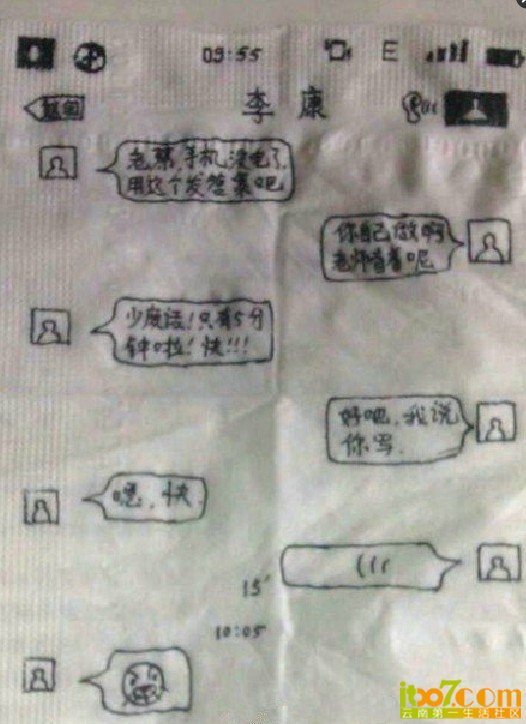 09:55 E
返回 李康
急禁,手机没电了,
用这个发答案吧
你自己做啊
老师看着呢
少废话!只有5分
钟啦!快!!!
好吧,我说
你写.
嗯,快
15"
10:05
itxo7com
云南第一生活社区